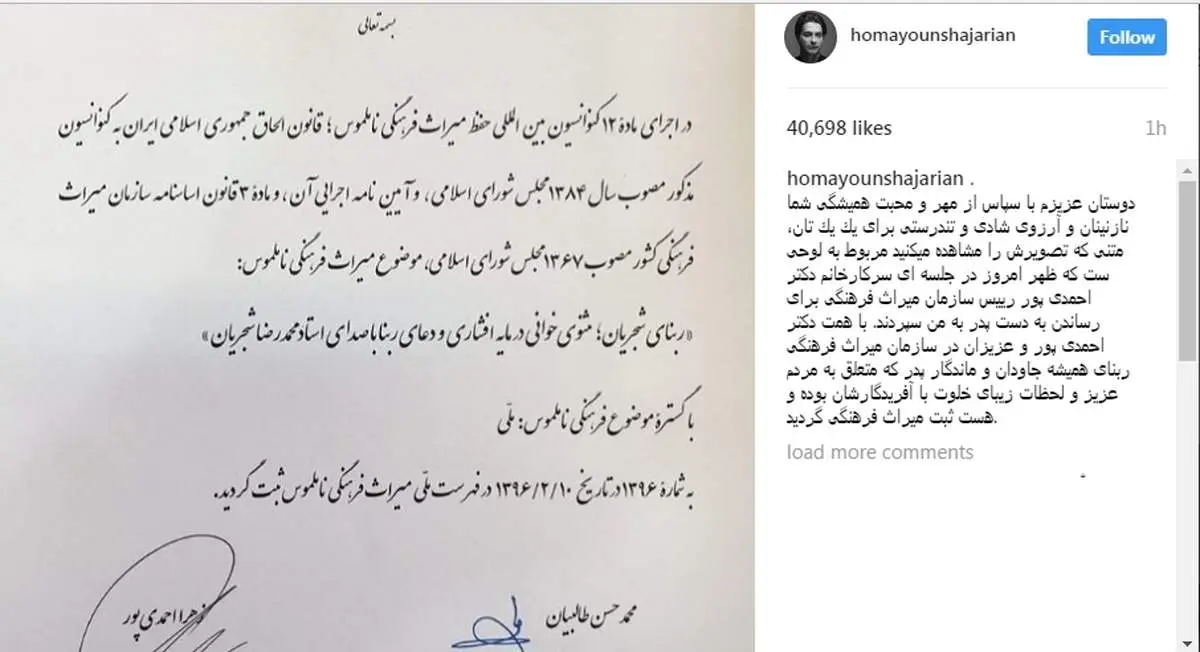 بسمه تعالی
در اجرای مادهٔ ۱۲ کنوانسیون بین المللی حفظ میراث فرهنگی ناملموس؛ قانون الحاق جمهوری اسلامی ایران به کنوانسیون
مذکور مصوب سال ۱۳۸۴ مجلس شورای اسلامی، و آیین نامه اجرایی آن، و مادهٔ ۳ قانون اساسنامه سازمان میراث
فرهنگی کشور مصوب ۱۳۶۷ مجلس شورای اسلامی، موضوع میراث فرهنگی ناملموس:
«ربنای شجریان؛ مثنوی خوانی در مایه افشاری و دعای ربنا با صدای استاد محمدرضا شجریان»
با گسترهٔ موضوع فرهنگی ناملموس: ملّی
به شمارهٔ ۱۳۹۶ در تاریخ ۱۳۹۶/۲/۱۰ در فهرست ملّی میراث فرهنگی ناملموس ثبت گردید.
محمدحسن طالبیان
زهرا احمدی پور
homayounshajarian
Follow
40,698 likes
1h
homayounshajarian .
دوستان عزیزم با سپاس از مهر و محبت همیشگی شما
نازنینان و آرزوی شادی و تندرستی برای یك یك تان،
متنی که تصویرش را مشاهده میکنید مربوط به لوحی
ست که ظهر امروز در جلسه ای سرکارخانم دکتر
احمدی پور رییس سازمان میراث فرهنگی برای
رساندن به دست پدر به من سپردند. با همت دکتر
احمدی پور و عزیزان در سازمان میراث فرهنگی
ربنای همیشه جاودان و ماندگار پدر که متعلق به مردم
عزیز و لحظات زیبای خلوت با آفریدگارشان بوده و
هست ثبت میراث فرهنگی گردید.
load more comments